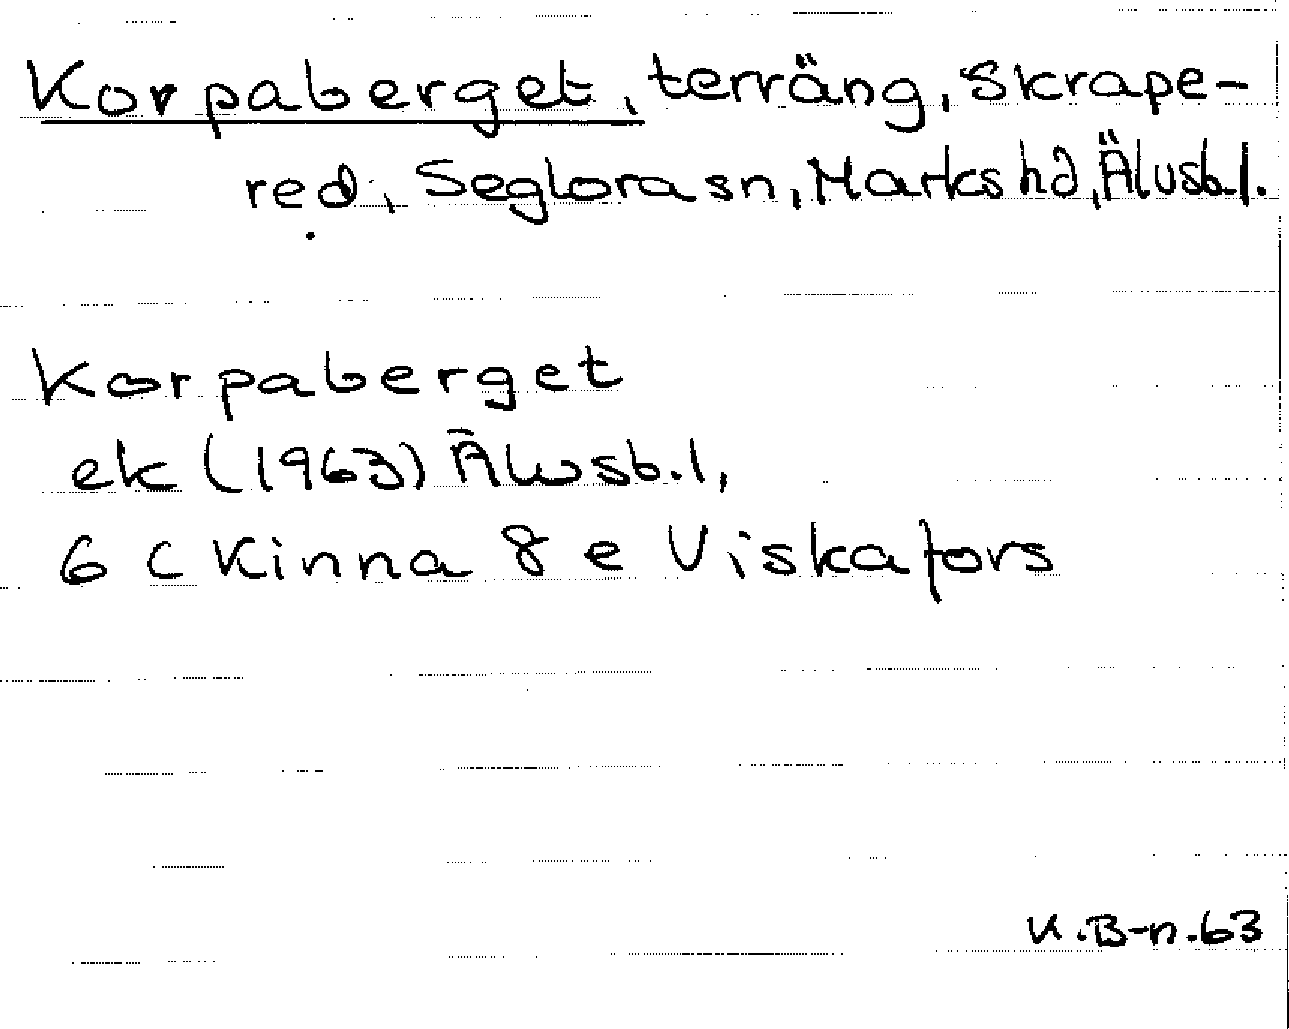 Korpaberget, terräng, Skrape-
red, Seglora sn, Marks hd, Älvsb.l.
Korpaberget
ek (1963) Älvsb.l,
6 C Kinna 8 e Viskafors
K.B-n.63